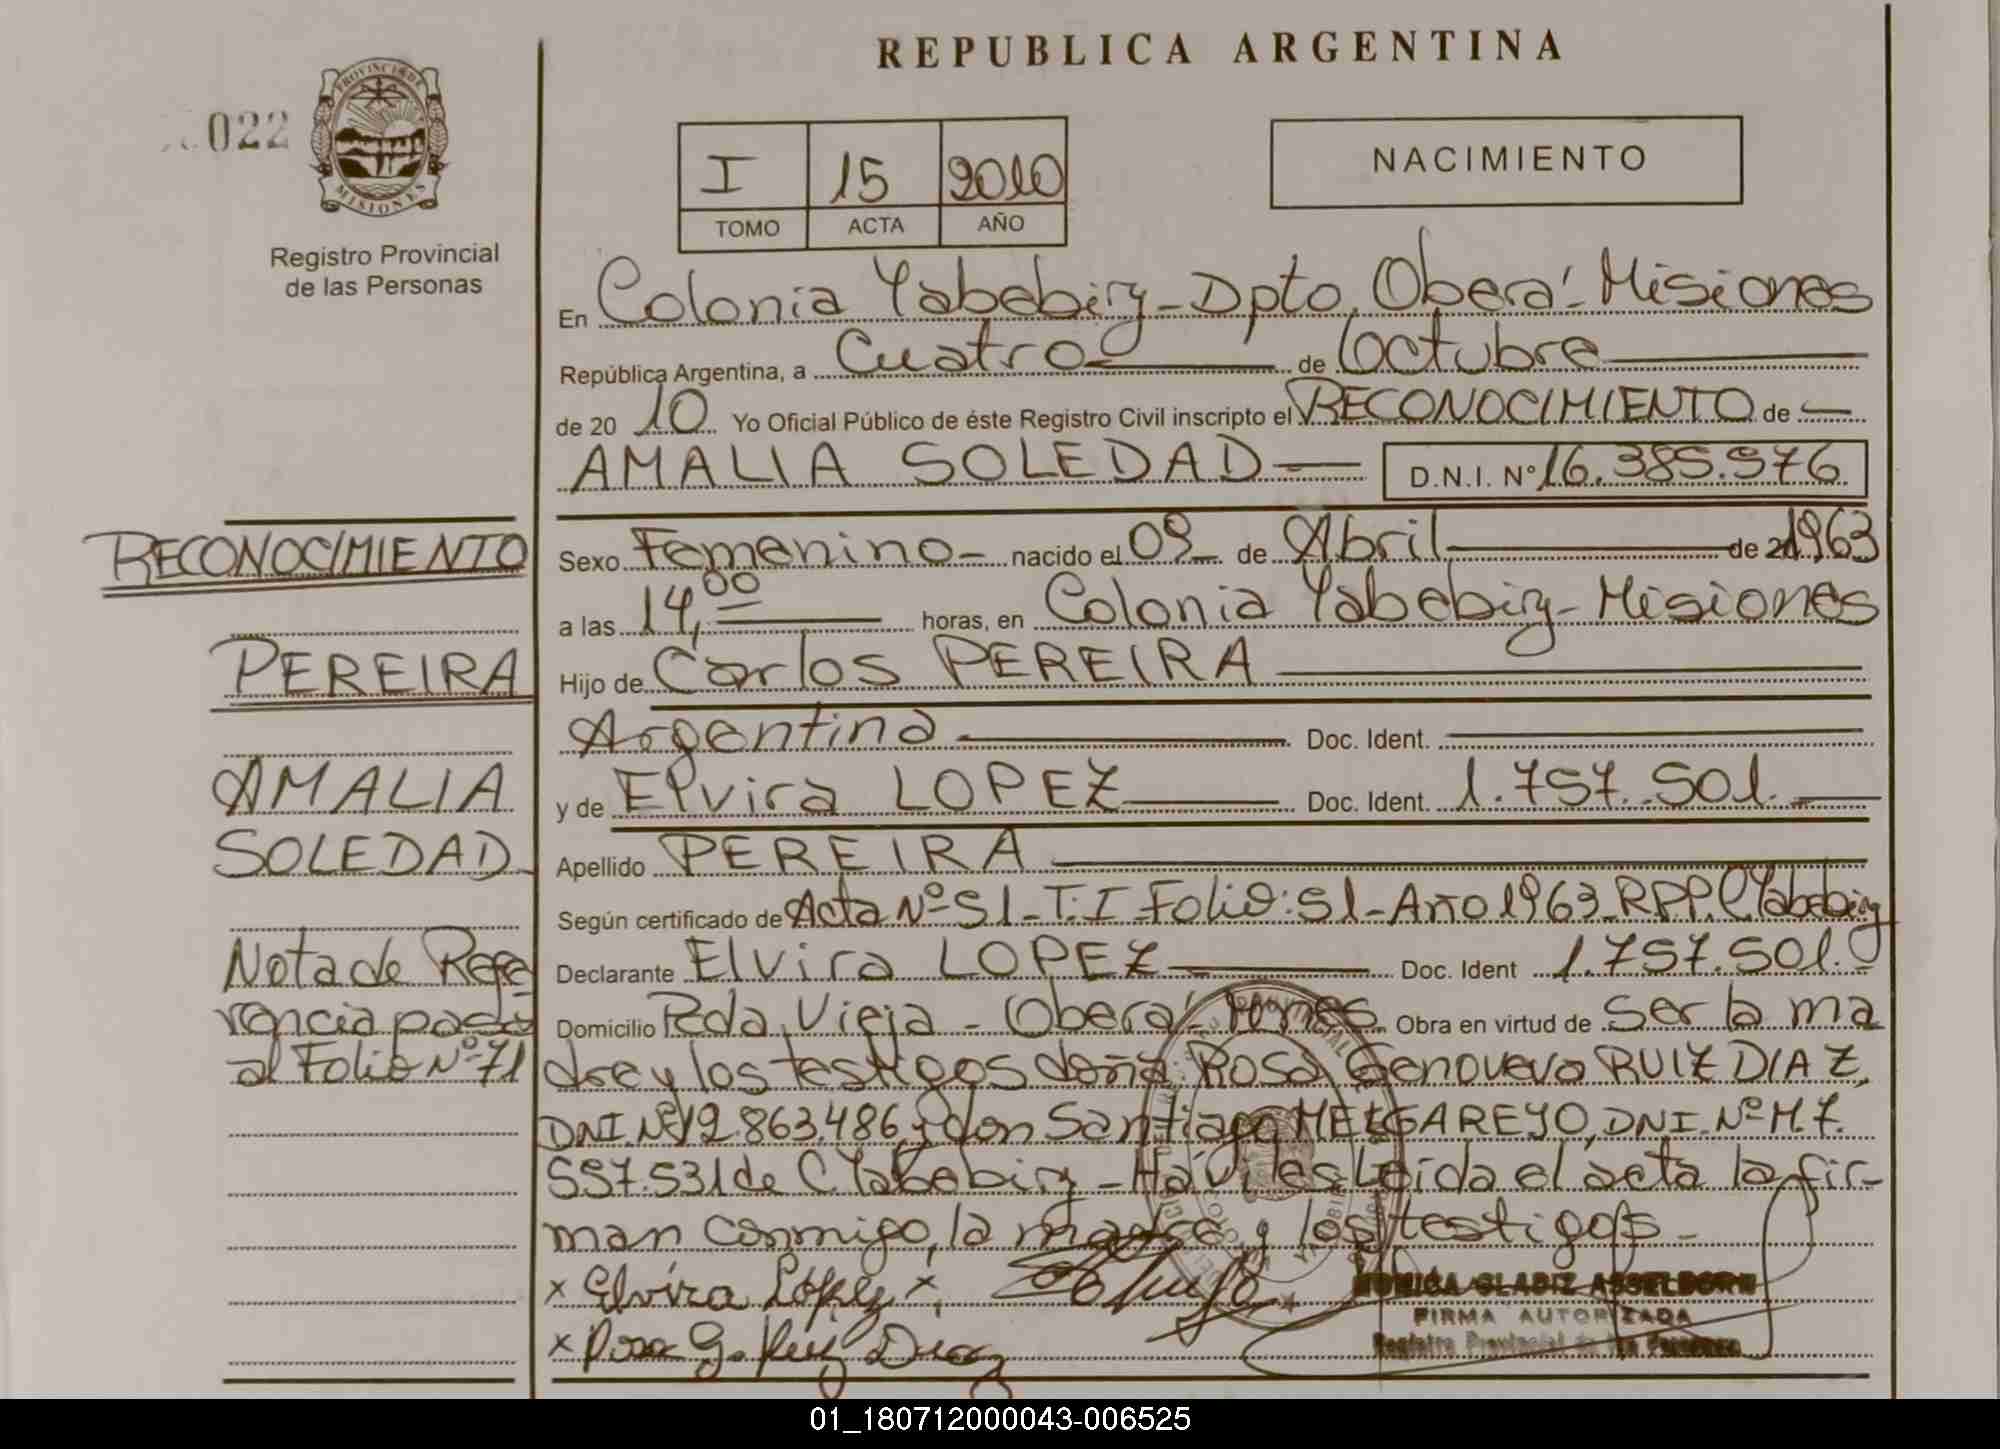 REPUBLICA ARGENTINA
022
PROVINCIA DE
MISIONES
Registro Provincial
de las Personas
I 15 2010
TOMO ACTA AÑO
NACIMIENTO
En Colonia Yabebiry - Dpto. Oberá - Misiones
República Argentina, a Cuatro de Octubre
de 20 10 Yo Oficial Público de éste Registro Civil inscripto el RECONOCIMIENTO de
AMALIA SOLEDAD D.N.I. Nº 16.385.976
Sexo Femenino nacido el 09 de Abril de 1963
a las 14,00 horas, en Colonia Yabebiry - Misiones
Hijo de Carlos PEREIRA
Argentina Doc. Ident.
y de Elvira LOPEZ Doc. Ident. 1.757.501.
Apellido PEREIRA
Según certificado de Acta Nº 51 - T. I - Folio: 51 - Año 1963 - RPP. C. Yabebiry
Declarante Elvira LOPEZ Doc. Ident 1.757.501.
Domicilio Pda. Vieja - Oberá - Mnes. Obra en virtud de ser la ma
dre y los testigos doña: Rosa Genoveva RUIZ DIAZ,
DNI. Nº 12.863.486 y don Santiago MELGAREJO, DNI. Nº M. 7.
557.531 de C. Yabebiry - Leída el acta la fir-
man conmigo, la madre y los testigos -
x Elvira López x
x Rosa G. Ruiz Diaz
MONICA GLADIZ ASSELBORN
FIRMA AUTORIZADA
Registro Provincial de las Personas
RECONOCIMIENTO
PEREIRA
AMALIA
SOLEDAD
Nota de Refe
rencia pasa
al Folio Nº 71
01_180712000043-006525